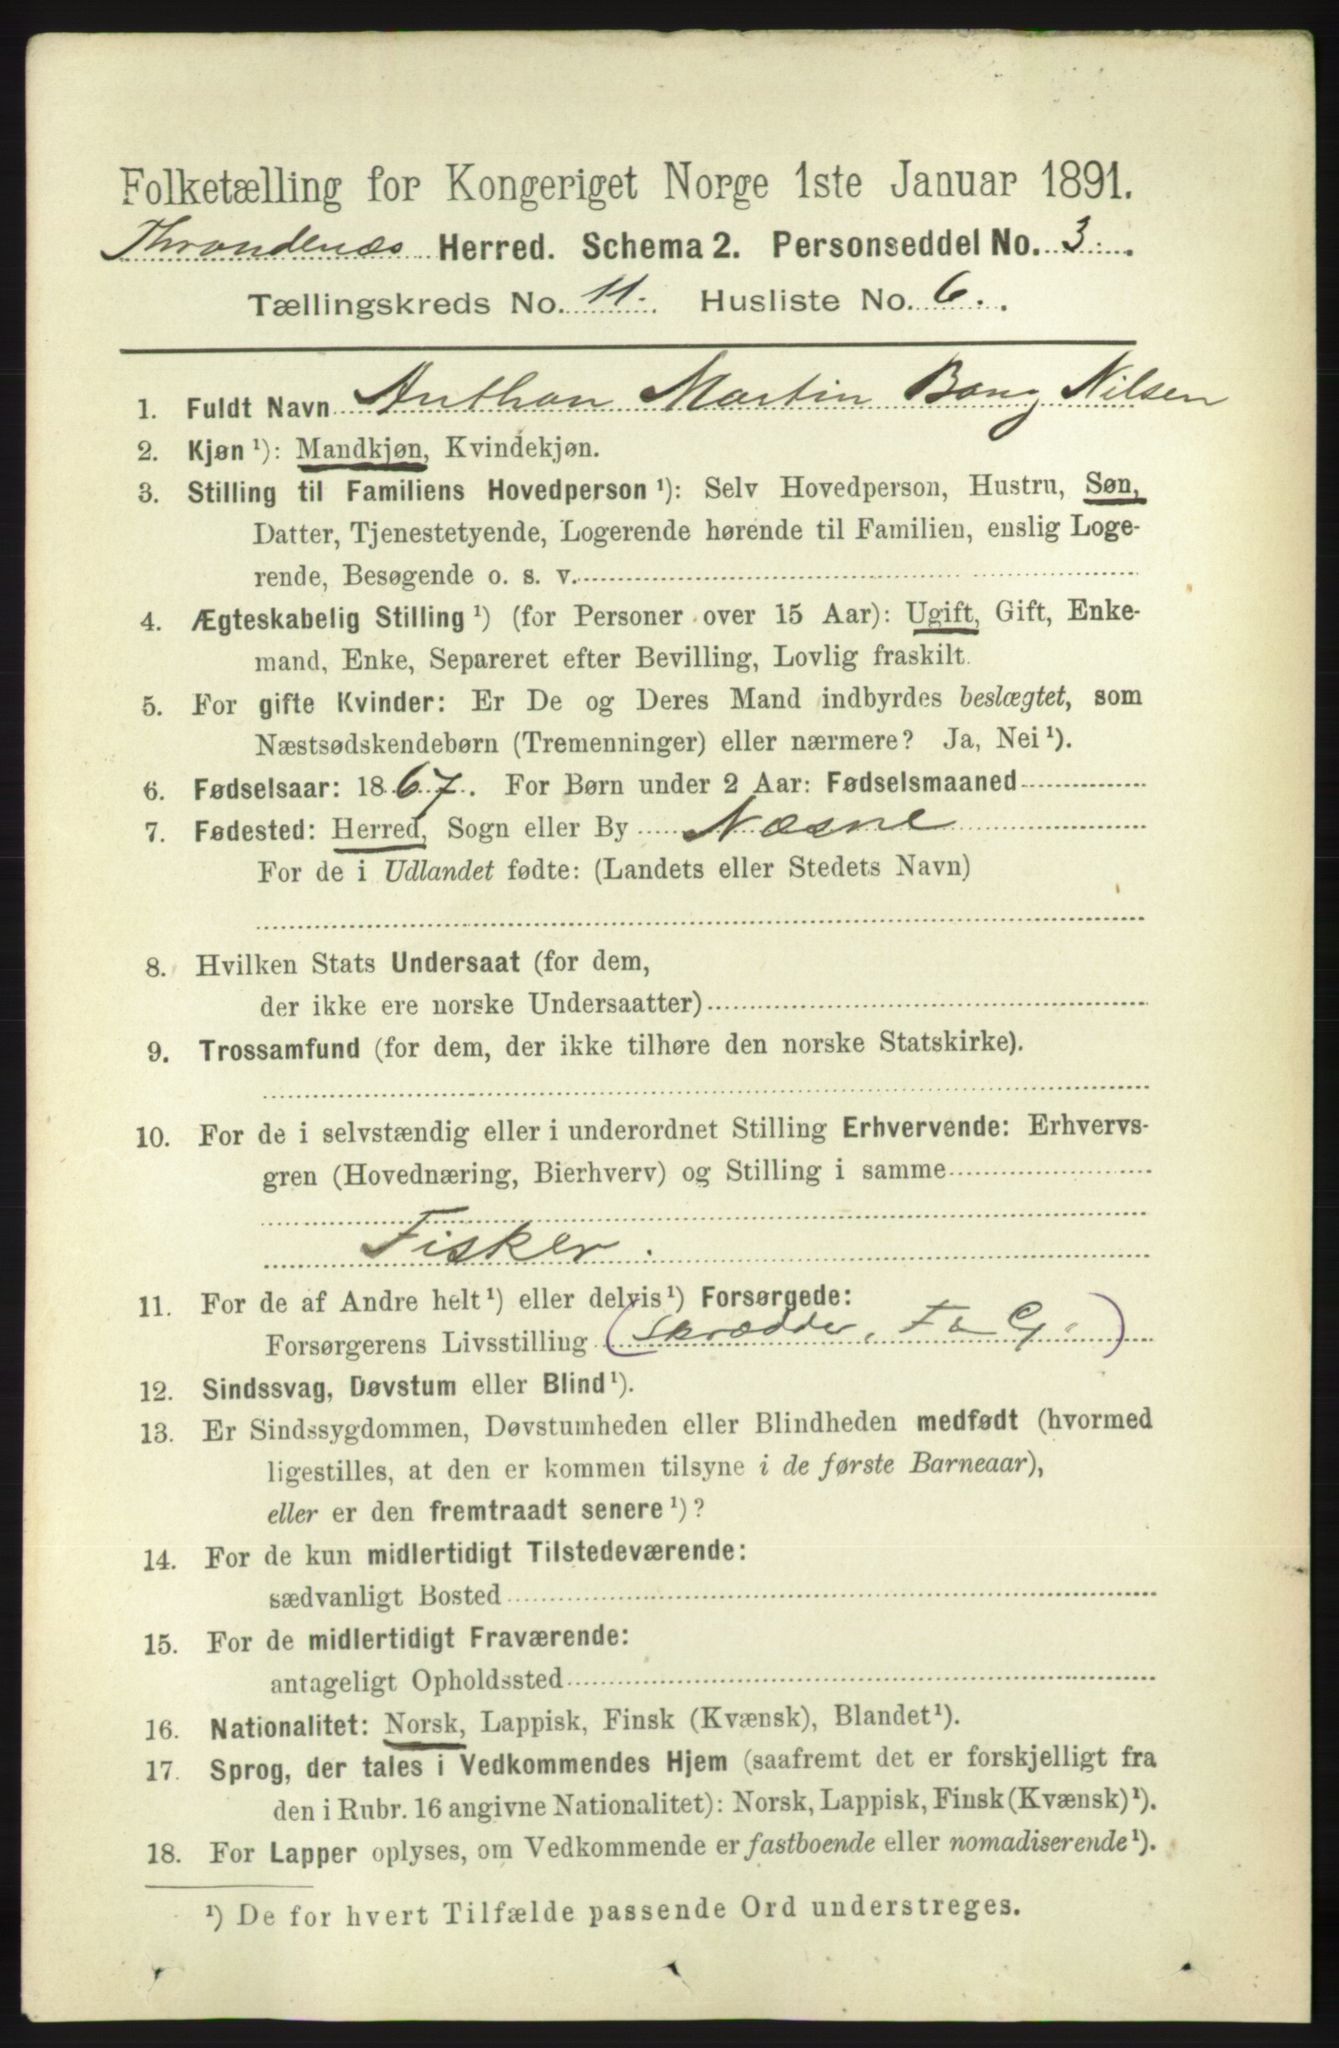 Folketælling for Kongeriget Norge 1ste Januar 1891.
Throndenæs Herred. Schema 2. Personseddel No. 3.
Tællingskreds No. 11. Husliste No. 6.
1. Fuldt Navn Anthon Martin Bang Nilsen
2. Kjøn ¹): Mandkjøn, Kvindekjøn.
3. Stilling til Familiens Hovedperson ¹): Selv Hovedperson, Hustru, Søn,
Datter, Tjenestetyende, Logerende hørende til Familien, enslig Loge-
rende, Besøgende o. s. v.
4. Ægteskabelig Stilling ¹) (for Personer over 15 Aar): Ugift, Gift, Enke-
mand, Enke, Separeret efter Bevilling, Lovlig fraskilt.
5. For gifte Kvinder: Er De og Deres Mand indbyrdes beslægtet, som
Næstsødskendebørn (Tremenninger) eller nærmere? Ja, Nei ¹).
6. Fødselsaar: 1867. For Børn under 2 Aar: Fødselsmaaned
7. Fødested: Herred, Sogn eller By Næsne
For de i Udlandet fødte: (Landets eller Stedets Navn)
8. Hvilken Stats Undersaat (for dem,
der ikke ere norske Undersaatter)
9. Trossamfund (for dem, der ikke tilhøre den norske Statskirke).
10. For de i selvstændig eller i underordnet Stilling Erhvervende: Erhvervs-
gren (Hovednæring, Bierhverv) og Stilling i samme
Fisker.
11. For de af Andre helt ¹) eller delvis ¹) Forsørgede:
Forsørgerens Livsstilling (Skrædder, F G.)
12. Sindssvag, Døvstum eller Blind ¹).
13. Er Sindssygdommen, Døvstumheden eller Blindheden medfødt (hvormed
ligestilles, at den er kommen tilsyne i de første Barneaar),
eller er den fremtraadt senere ¹)?
14. For de kun midlertidigt Tilstedeværende:
sædvanligt Bosted
15. For de midlertidigt Fraværende:
antageligt Opholdssted
16. Nationalitet: Norsk, Lappisk, Finsk (Kvænsk), Blandet ¹).
17. Sprog, der tales i Vedkommendes Hjem (saafremt det er forskjelligt fra
den i Rubr. 16 angivne Nationalitet): Norsk, Lappisk, Finsk (Kvænsk) ¹).
18. For Lapper oplyses, om Vedkommende er fastboende eller nomadiserende ¹).
¹) De for hvert Tilfælde passende Ord understreges.